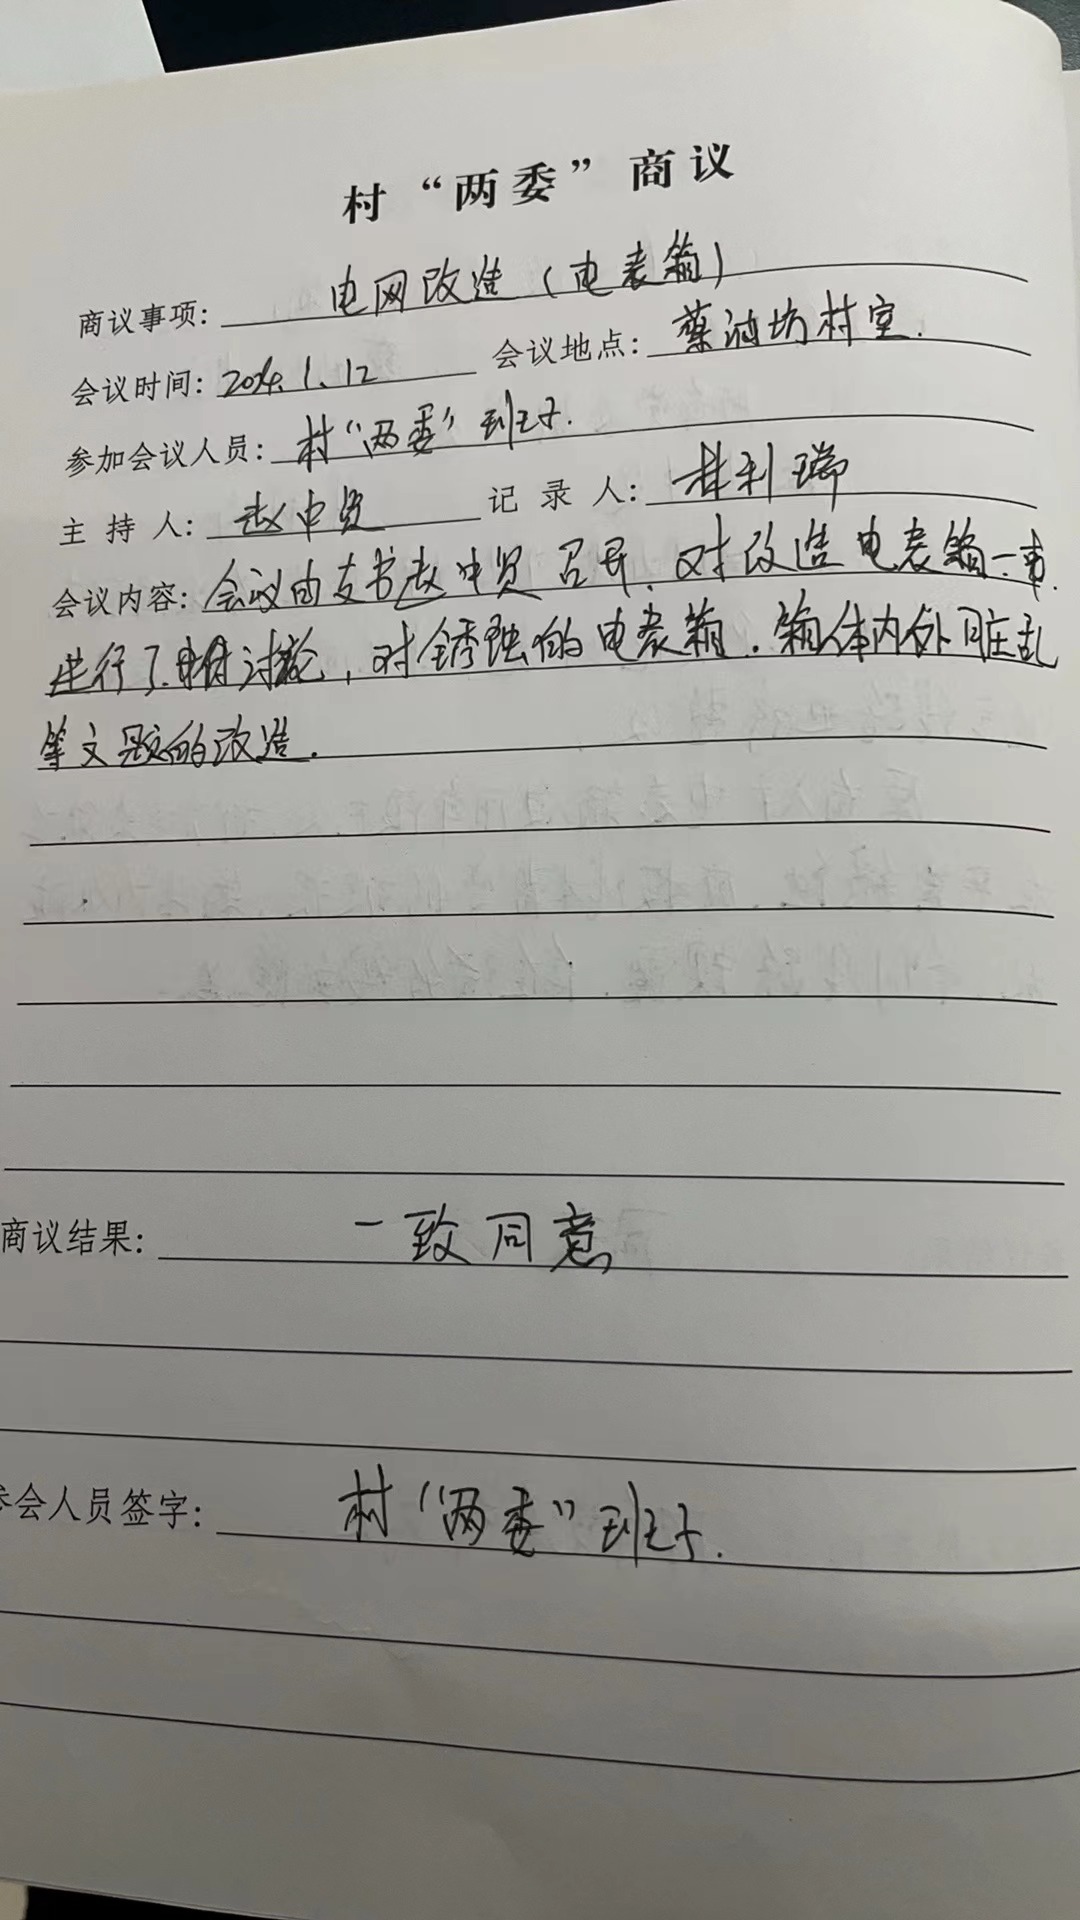 村“两委”商议
商议事项: 电网改造（电表箱）
会议时间: 2024.1.12 会议地点: 蔡油坊村室.
参加会议人员: 村“两委”班子.
主 持 人: 赵中贤 记 录 人: 林利瑞
会议内容: 会议由支书赵中贤召开. 对改造电表箱一事.
进行了 讨论, 对锈蚀的电表箱. 箱体内外脏乱
等文题的改造.
商议结果: 一致同意
参会人员签字: 村“两委”班子.